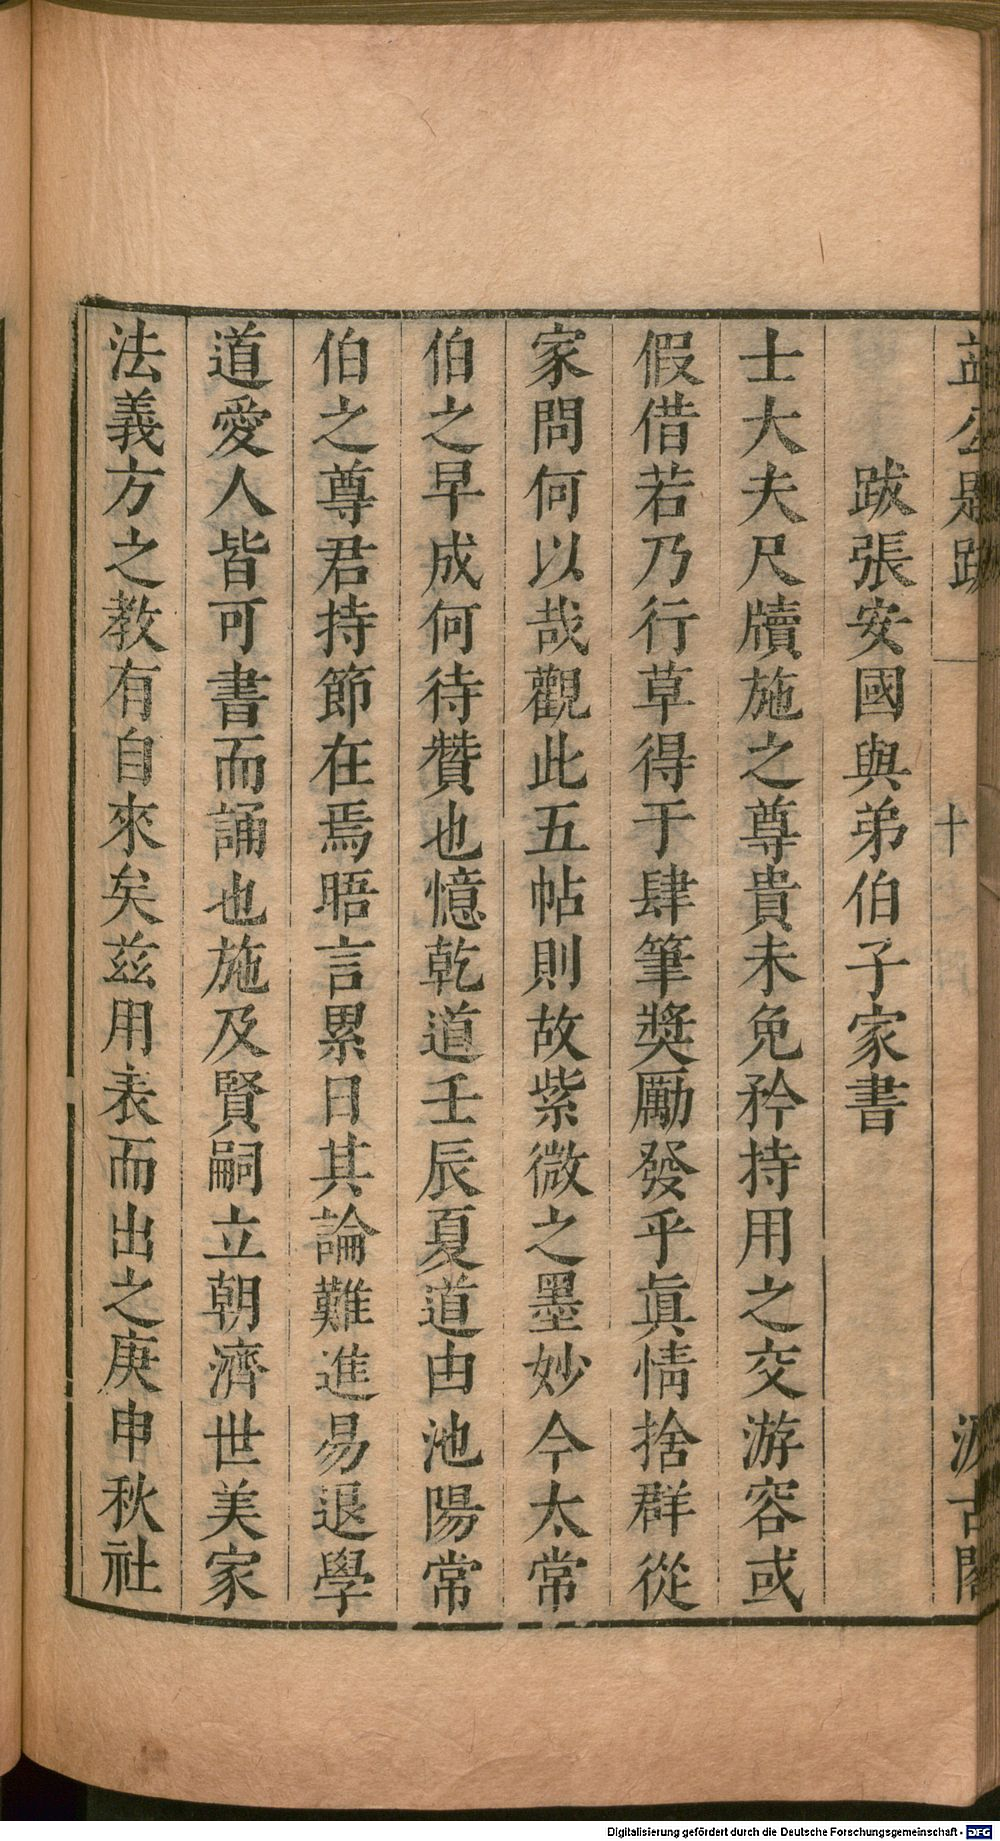 益公題跋 十 汲古閣
跋張安國與弟伯子家書
士大夫尺牘施之尊貴未免矜持用之交游容或
假借若乃行草得于肆筆獎厲發乎眞情捨群從
家問何以哉觀此五帖則故紫微之墨妙今太常
伯之早成何待贊也憶乾道壬辰夏道由池陽常
伯之尊君持節在焉晤言累日其論難進易退學
道愛人皆可書而誦也施及賢嗣立朝濟世美家
法義方之教有自來矣茲用表而出之庚申秋社
Digitalisierung gefördert durch die Deutsche Forschungsgemeinschaft - DFG